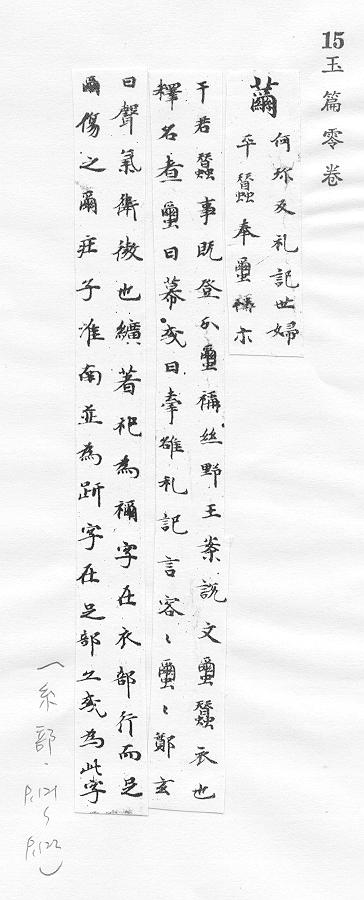 15
玉篇零卷
繭
何殄反礼記世婦
卒蠶奉𧖀𥘵亦
于君蠶事既登分𧖀稱絲野王案說文𧖀蠶衣也
釋名煮𧖀曰幕或曰牽離礼記言容〻𧖀〻鄭玄
曰聲氣微也纊著袍為襺字在衣部行而足
傷之𧖀庄子淮南並為趼字在足部亦或為此字
(糸部.
P.121
〜
P.122)